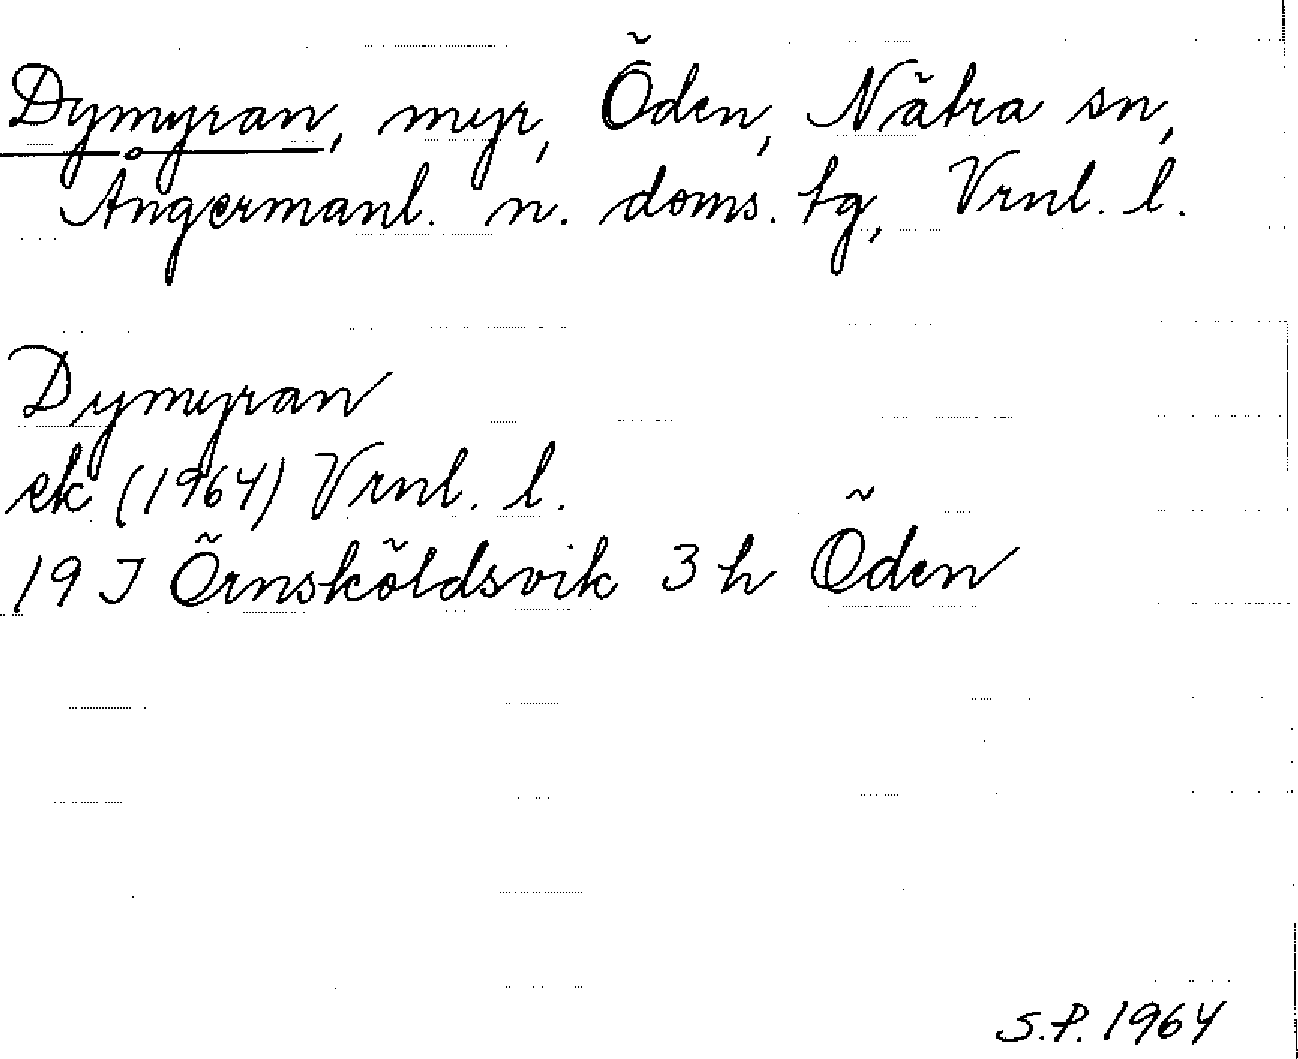 Dymyran, myr, Öden, Nätra sn,
Ångermanl. n. doms. tg, Vrnl. l.
Dymyran
ek (1964) Vrnl. l.
19 J Örnsköldsvik 3 h Öden
S.P. 1964